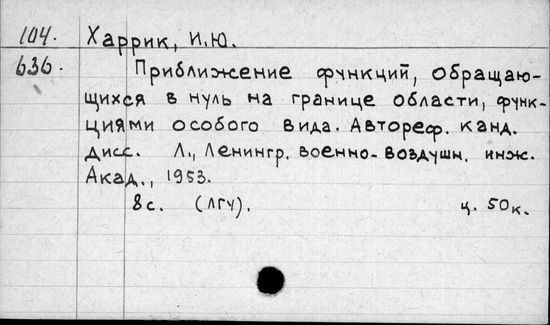 104. Харрик, И.Ю.
636. Приближение функций, обращаю-
щихся в нуль на границе области, функ-
циями особого вида. Автореф. канд.
дисс. Л., Ленингр. военно-воздушн. инж.
Акад., 1953.
8с. (ЛГУ). ц. 50к.